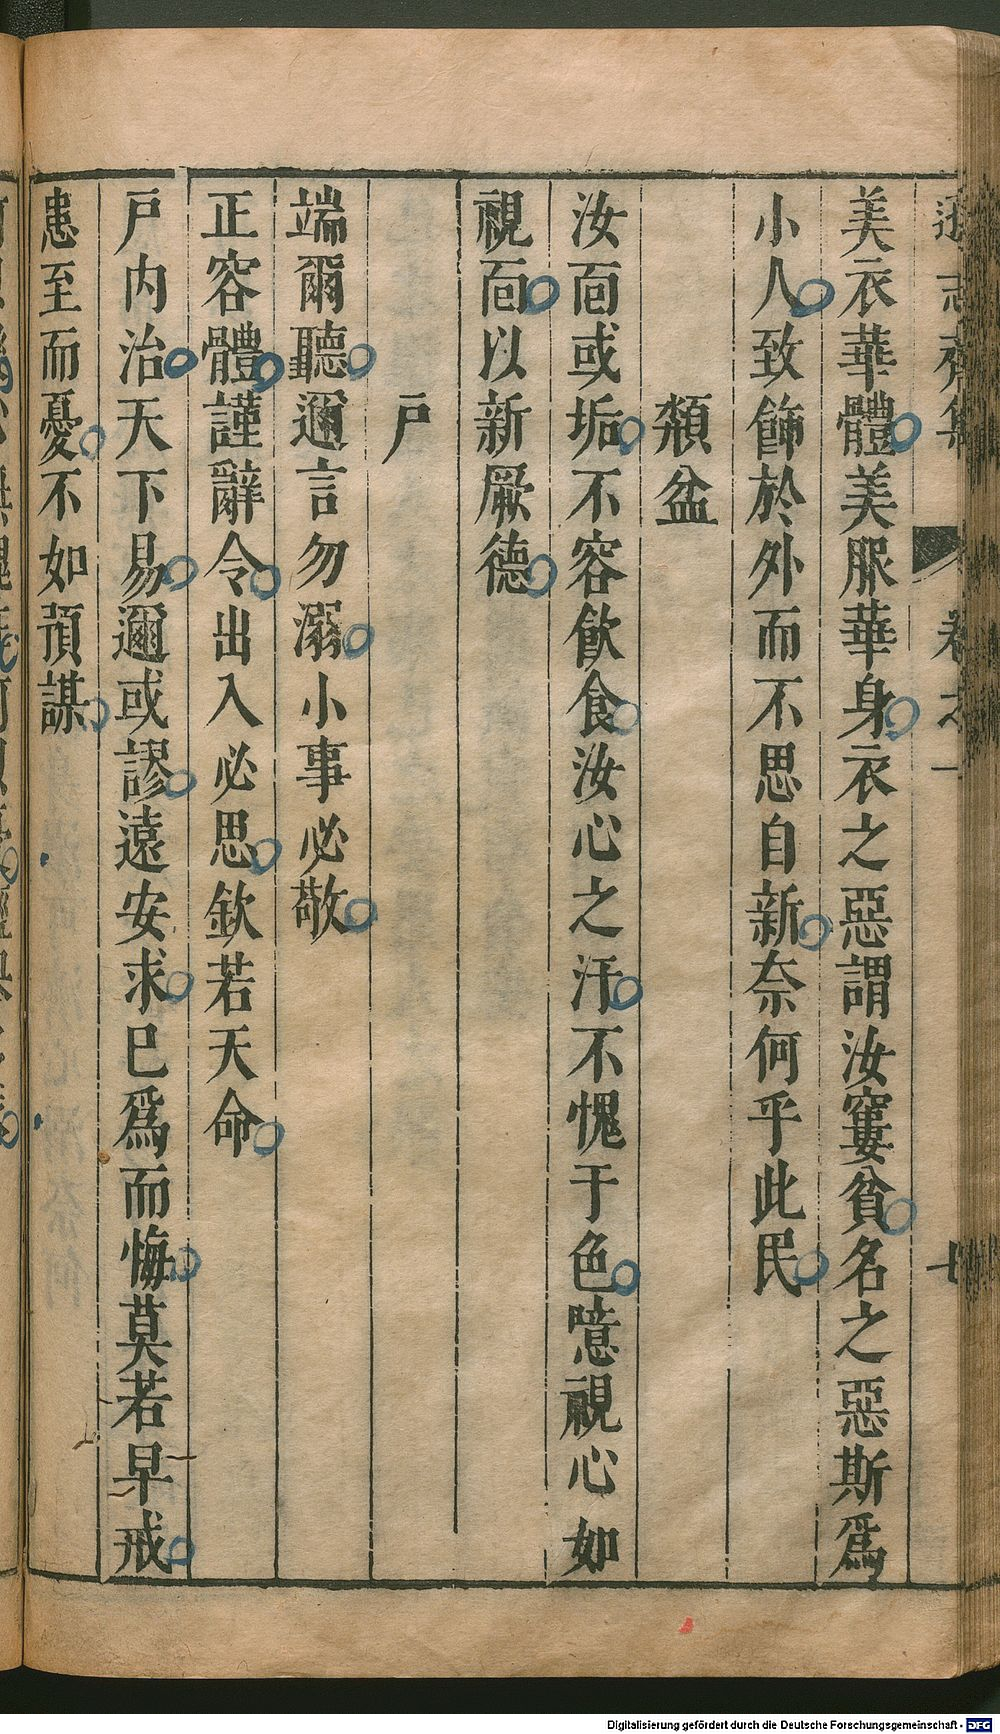 遜志齋集 卷之一 七
美衣華體美服華身衣之惡謂汝窶貧名之惡斯爲
小人致飾於外而不思自新奈何乎此民
頮盆
汝面或垢不容飲食汝心之汙不愧于色噫視心如
視面以新厥德
戶
端爾聽邇言勿溺小事必敬
正容體謹辭令出入必思欽若天命
戶內治天下易邇或謬遠安求已爲而悔莫若早戒
患至而憂不如預謀
Digitalisierung gefördert durch die Deutsche Forschungsgemeinschaft - DFG